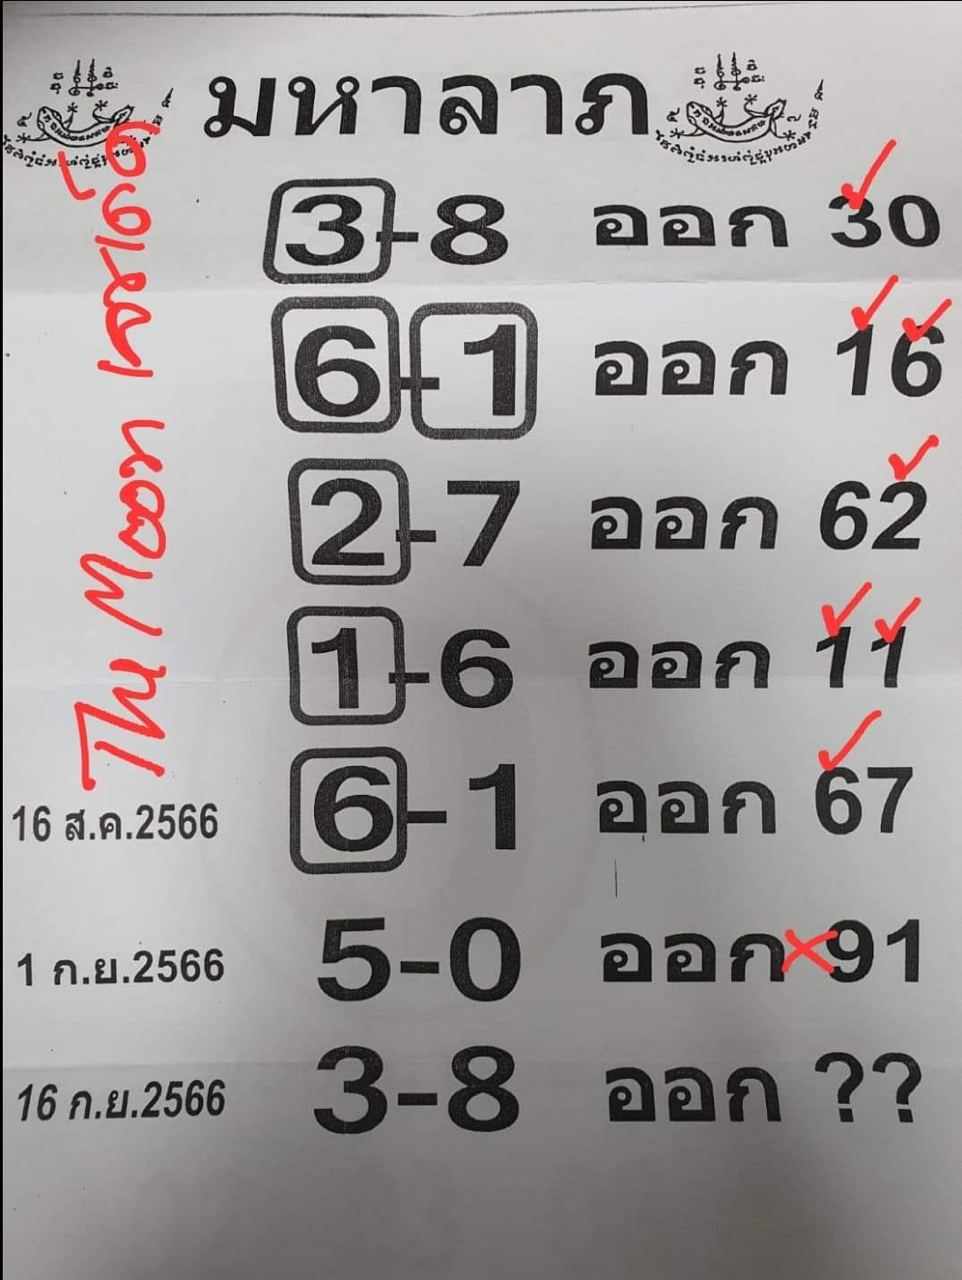 มหาลาภ
3-8 ออก 30
6-1 ออก 16
2-7 ออก 62
1-6 ออก 11
16 ส.ค.2566 6-1 ออก 67
1 ก.ย.2566 5-0 ออก 91
16 ก.ย.2566 3-8 ออก ??